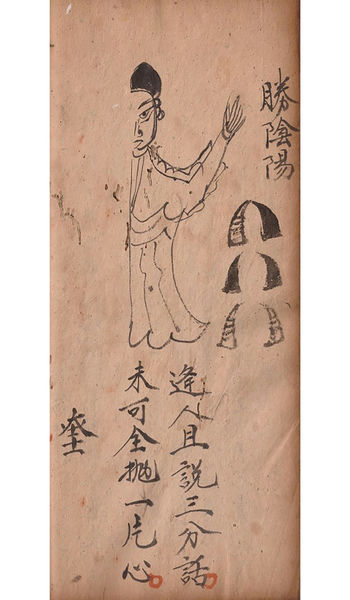 勝陰陽
逢人且説三分話
未可全抛一片心